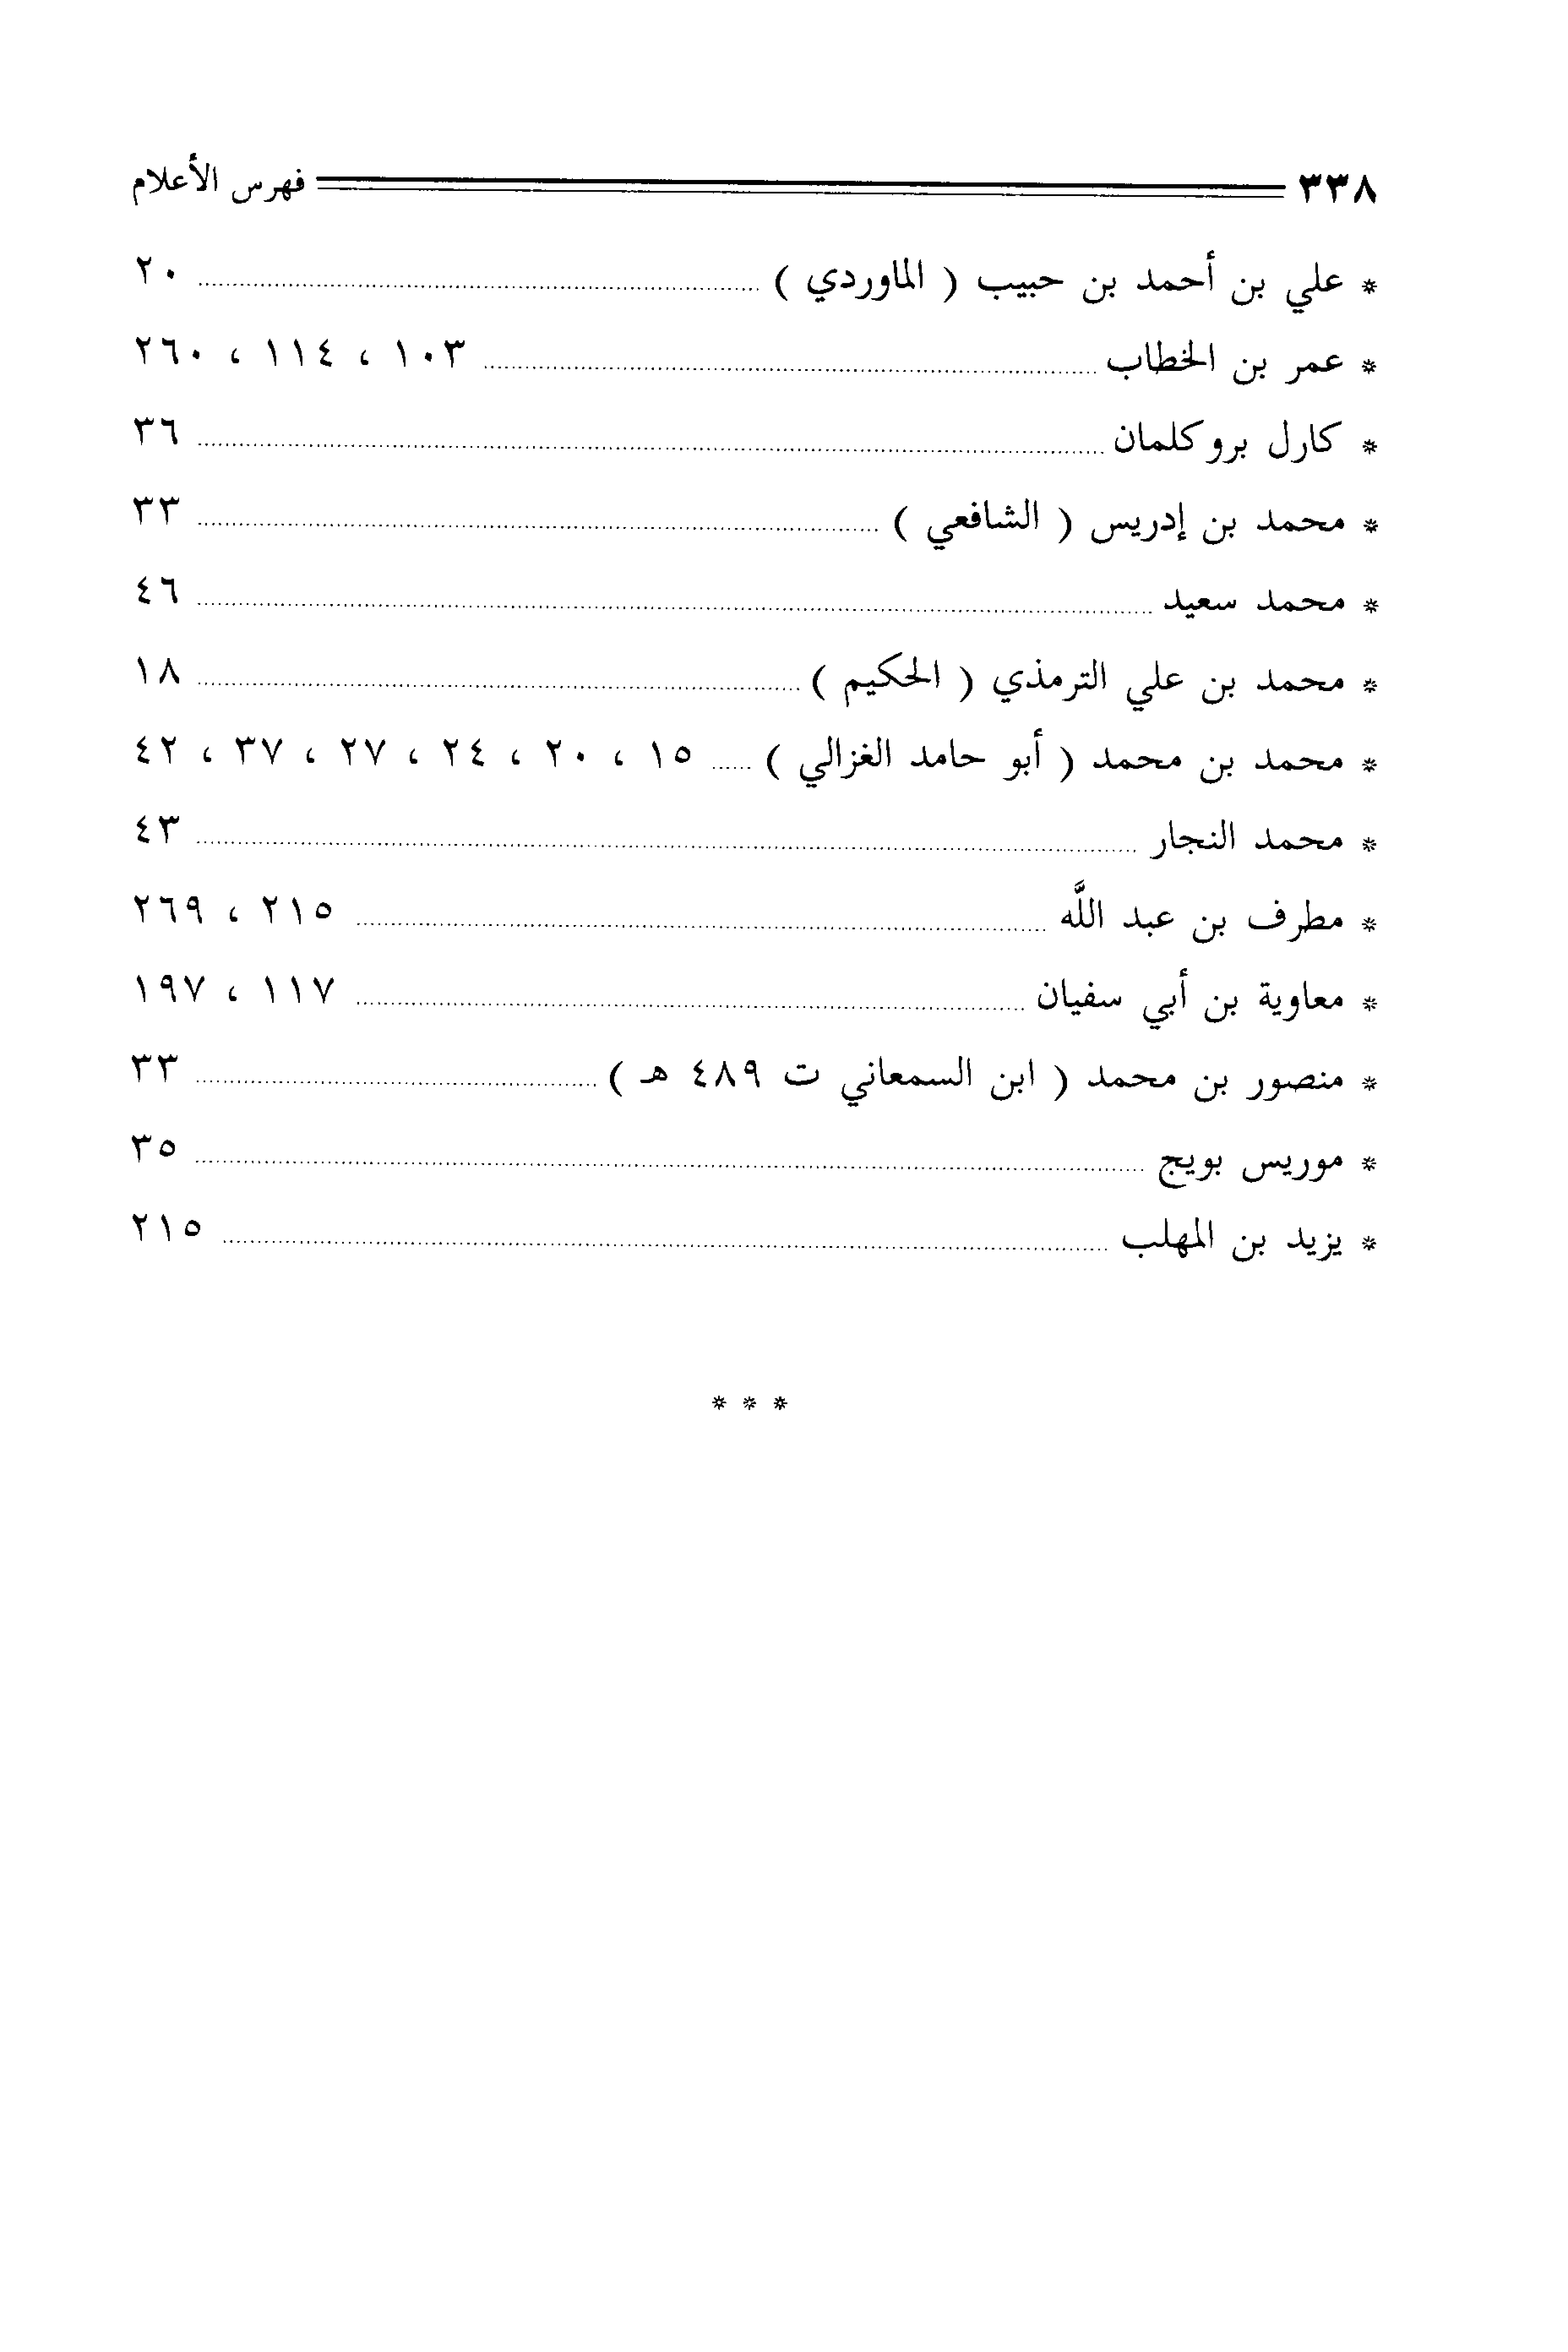 ٣٣٨ فهرس الأعلام
* علي بن أحمد بن حبيب ( الماوردي ) ٢٠
* عمر بن الخطاب ١٠٣ ، ١١٤ ، ٢٦٠
* كارل بروكلمان ٣٦
* محمد بن إدريس ( الشافعي ) ٣٣
* محمد سعيد ٤٦
* محمد بن علي الترمذي ( الحكيم ) ١٨
* محمد بن محمد ( أبو حامد الغزالي ) ١٥ ، ٢٠ ، ٢٤ ، ٢٧ ، ٣٧ ، ٤٢
* محمد النجار ٤٣
* مطرف بن عبد اللَّه ٢١٥ ، ٢٦٩
* معاوية بن أبي سفيان ١١٧ ، ١٩٧
* منصور بن محمد ( ابن السمعاني ت ٤٨٩ هـ ) ٣٣
* موريس بويج ٣٥
* يزيد بن المهلب ٢١٥
* * *